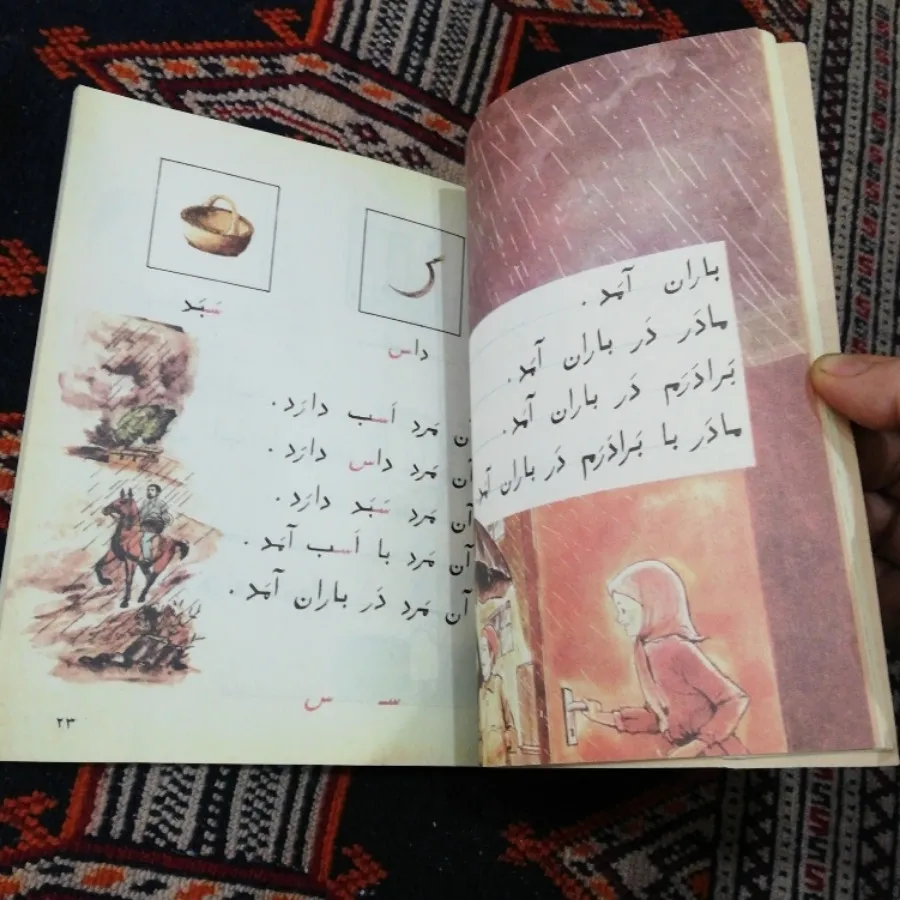 باران آمَد .
مادَر دَر باران آمَد .
بَرادَرَم دَر باران آمَد .
مادَر با بَرادَرَم دَر باران آمَد
داس
سَبَد
آن مَرد اَسب دارَد .
آن مَرد داس دارَد .
آن مَرد سَبَد دارَد .
آن مَرد با اَسب آمَد .
آن مَرد دَر باران آمَد .
سـ س
۲۳